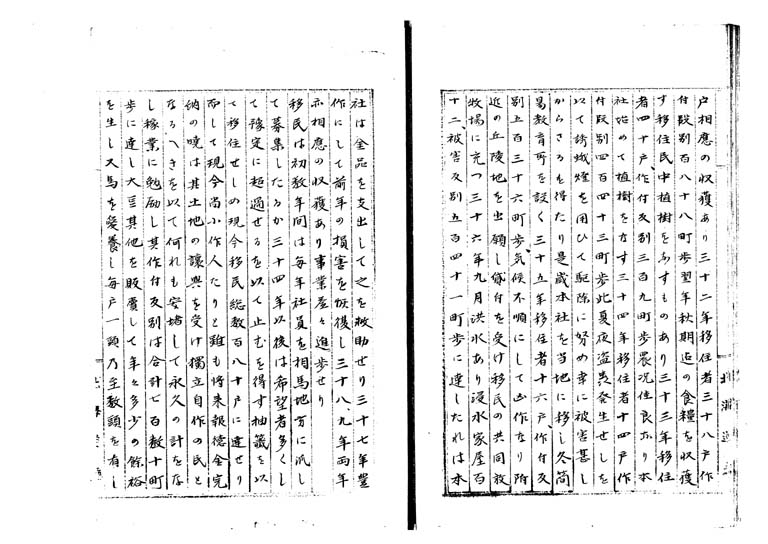 戸相應の収穫あり三十二年移住者三十八戸作
付段別百八十八町歩翌年秋期迄の食糧を収穫
す移住民中植樹を為すものあり三十三年移住
者四十戸、作付段別三百九町歩農況佳良なり本
社始めて植樹をなす三十四年移住者十四戸作
付段別四百四十三町歩此夏夜盗虫発生せしを
以て誘蛾燈を用ひて駆除に努め幸に被害甚し
からさるを得たり是歳本社を当地に移し冬簡
易教育所を設く三十五年移住者十六戸、作付段
別五百三十六町歩、気候不順にして凶作なり附
近の丘陵地を出願し貸付を受け移民の共同放
牧場に充つ三十六年九月洪水あり浸水家屋百
十二、被害段別五百四十一町歩に達したれは本
社は金品を支出して之を救助せり三十七年豊
作にして前年の損害を恢復し三十八、九年両年
亦相應の収穫あり事業愈々進歩せり
移民は初数年間は毎年社員を相馬地方に派し
て募集したるか三十四年以後は希望者多くし
て豫定に超過せるを以て止むを得す抽籤を以
て移住せしめ現今移民総数百八十戸に達せり
而して現今尚小作人たりと雖も将来報徳金完
納の暁は其土地の譲與を受け獨立自作の民と
なるへきを以て何れも安堵して永久の計をな
し稼業に勉励し其作付段別は合計七百数十町
歩に達し大豆其他を販賣して年々多少の餘裕
を生し又馬を愛養し毎戸一頭乃至数頭を有し